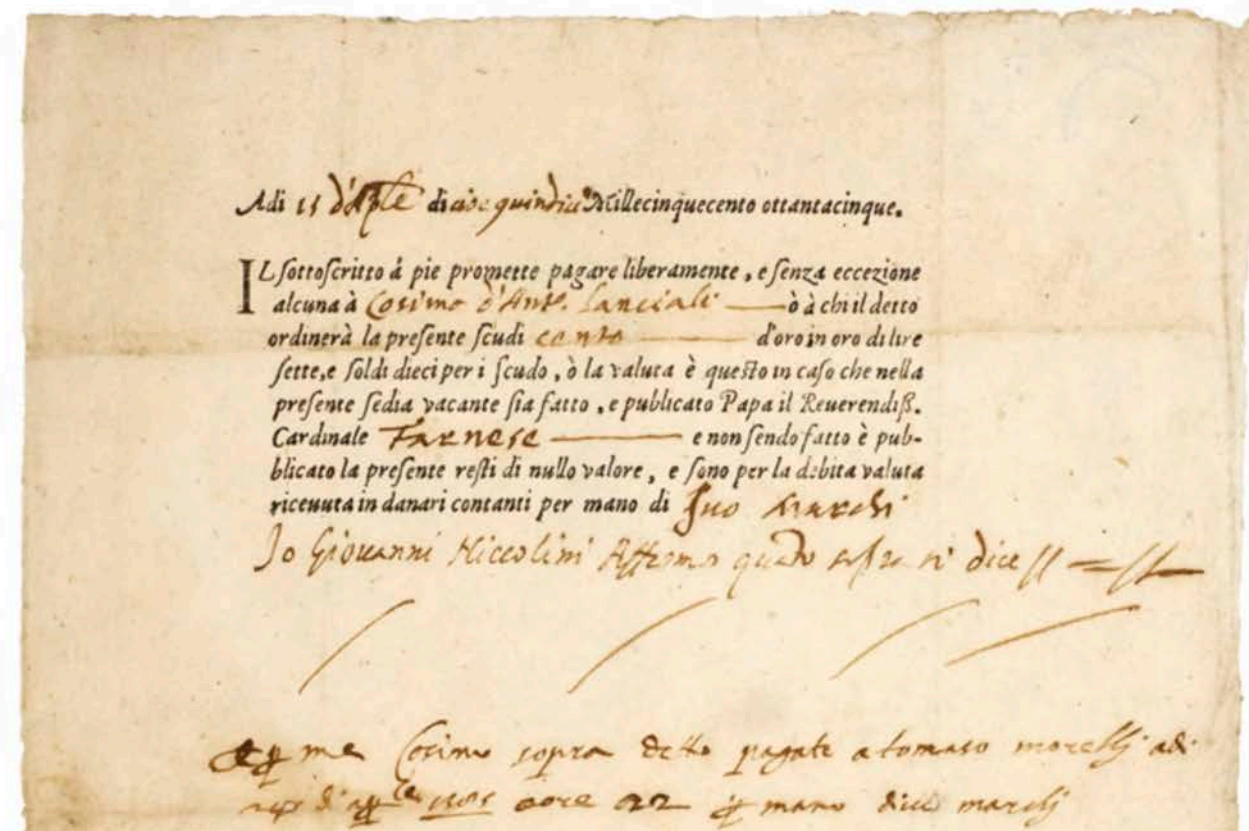 Adi 15 d'Aple di cioe quindici Millecinquecento ottantacinque.
IL sottoscritto à pie promette pagare liberamente, e senza eccezione
alcuna à Cosimo d'Anto. Lanciali ò à chi il detto
ordinerà la presente scudi cento d'oro in oro di lire
sette, e soldi dieci per i scudo, ò la valuta è questo in caso che nella
presente sedia vacante sia fatto, e publicato Papa il Reuerendiß.
Cardinale Farnese e non sendo fatto è pub-
blicato la presente resti di nullo valore, e sono per la debita valuta
riceuuta in danari contanti per mano di
Io Giouanni Niccolini Affermo quato sopra si dice
me Cosimo sopra detto pagate a tomaso morelli adi
1585 ore 22 mano